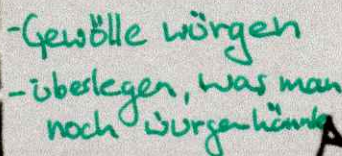 -Gewölle würgen
-überlegen, was man
noch würgen könnte